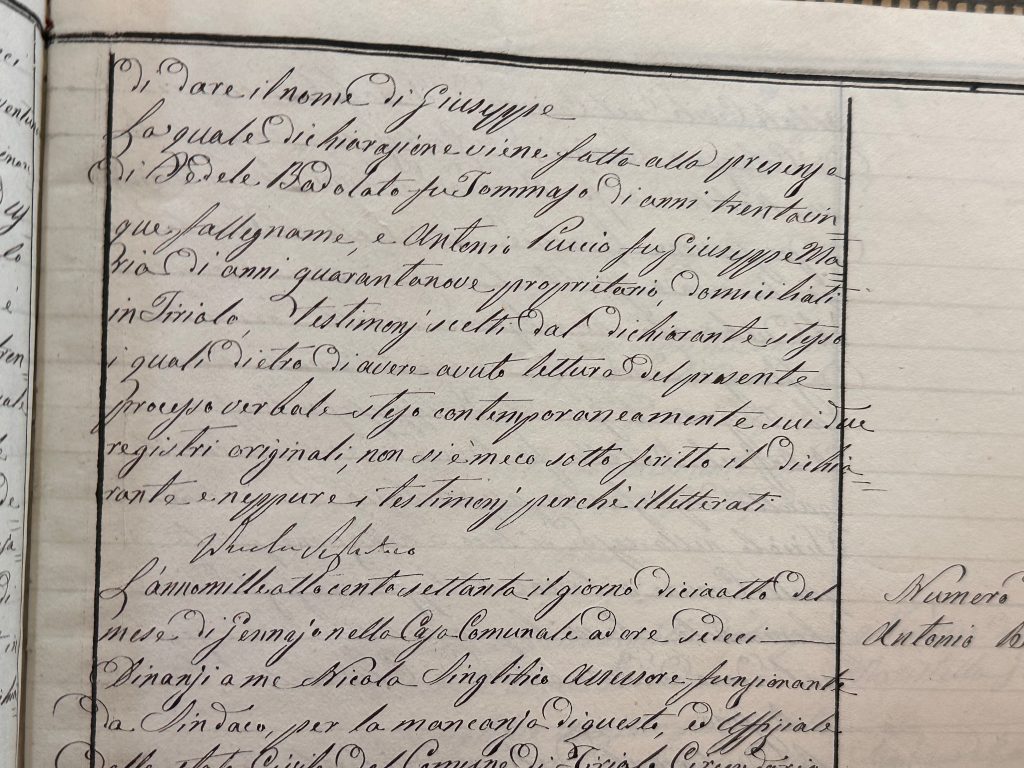 di dare il nome di Giuseppe
La quale dichiarazione viene fatta alla presenza
di Fedele Badolato fu Tommaso di anni trentacin
que falegname, e Antonio Puccio fu Giuseppe Ma=
ria di anni quarantanove proprietario, domiciliati
in Tiriolo, testimonj scelti dal dichiarante stesso
i quali dietro di avere avuto lettura del presente
processo verbale steso contemporaneamente sui due
registri originali, non si è meco sotto scritto il dichia=
rante e neppure i testimonj perchè illetterati
L'anno mille otto cento settanta il giorno diciaotto del
mese di Gennajo nella Casa Comunale ad ore sedeci
Dinanzi a me Nicola Assessore funzionante
da Sindaco, per la mancanza di questo, ed Uffiziale
dello stato Civile del Comune di Tiriolo Circondario
Numero
Antonio